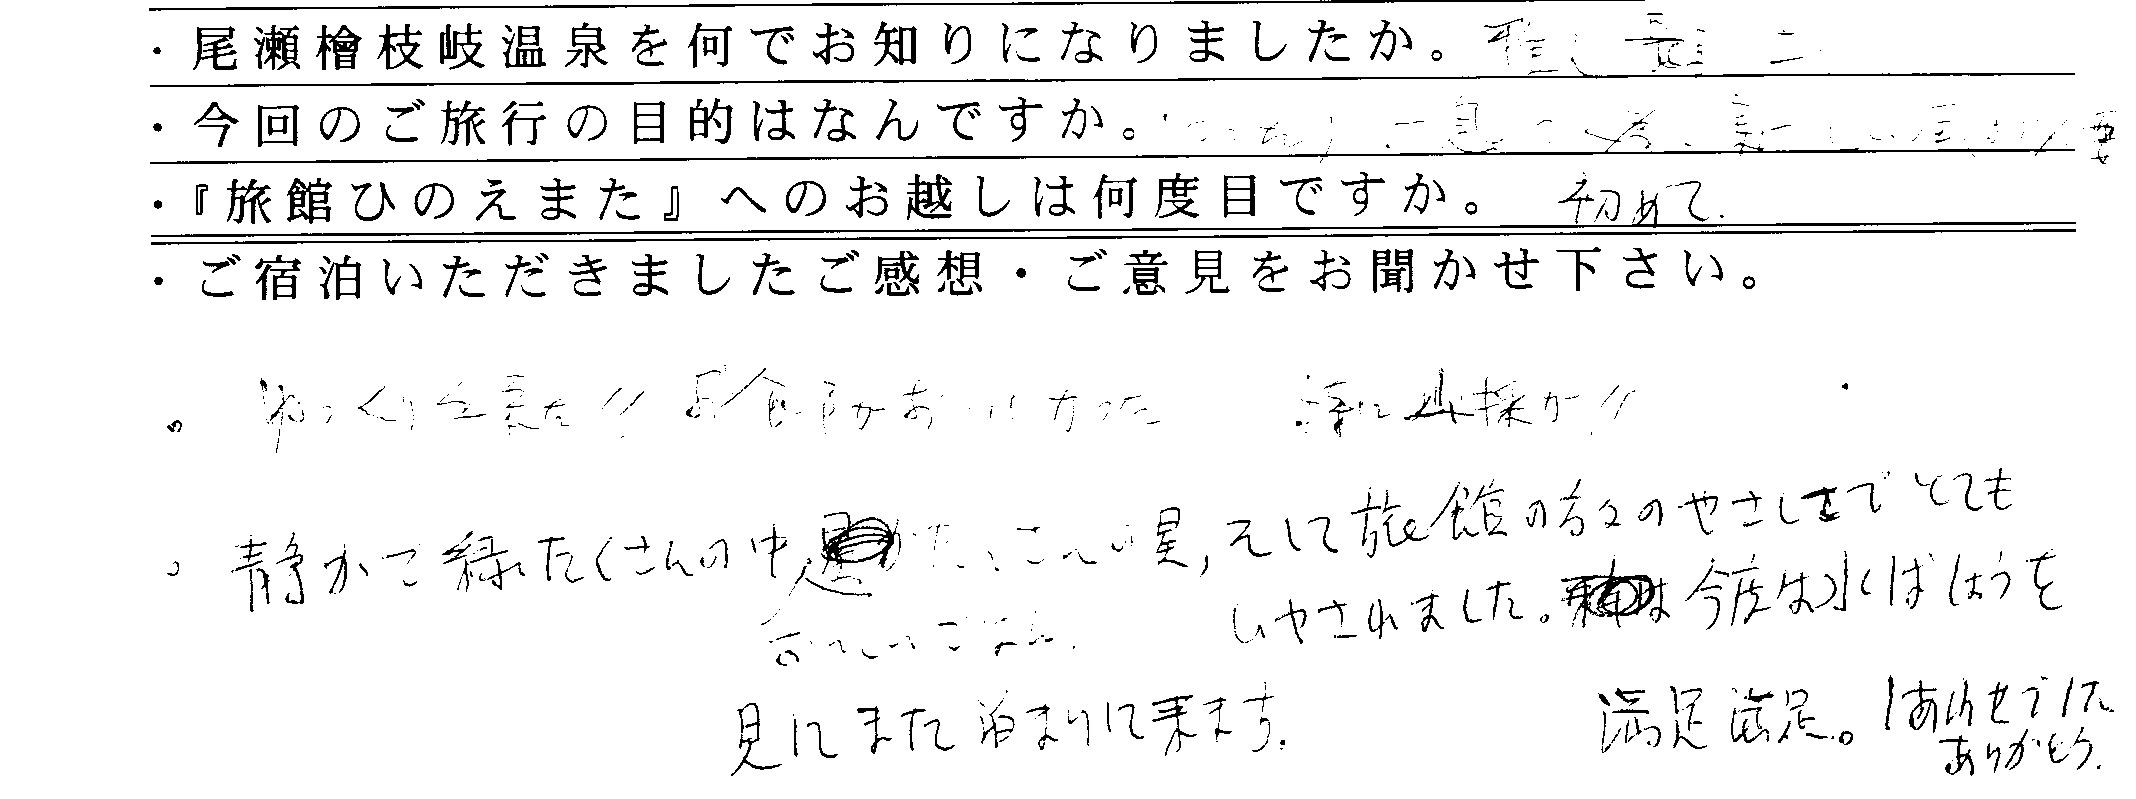 ・尾瀬檜枝岐温泉を何でお知りになりましたか。
・今回のご旅行の目的はなんですか。
・『旅館ひのえまた』へのお越しは何度目ですか。 初めて.
・ご宿泊いただきましたご感想・ご意見をお聞かせ下さい。
。ゆっくり出来た!! お食事がおいしかった 特に山採が!!
。静かで緑たくさんの中 たくさんの星, そして旅館の方々のやさしさでとても
おいしいごはん.
いやされました。 今度は水ばしょうを
見にまた泊まりに来ます.
満足満足。しあわせでした
ありがとう.